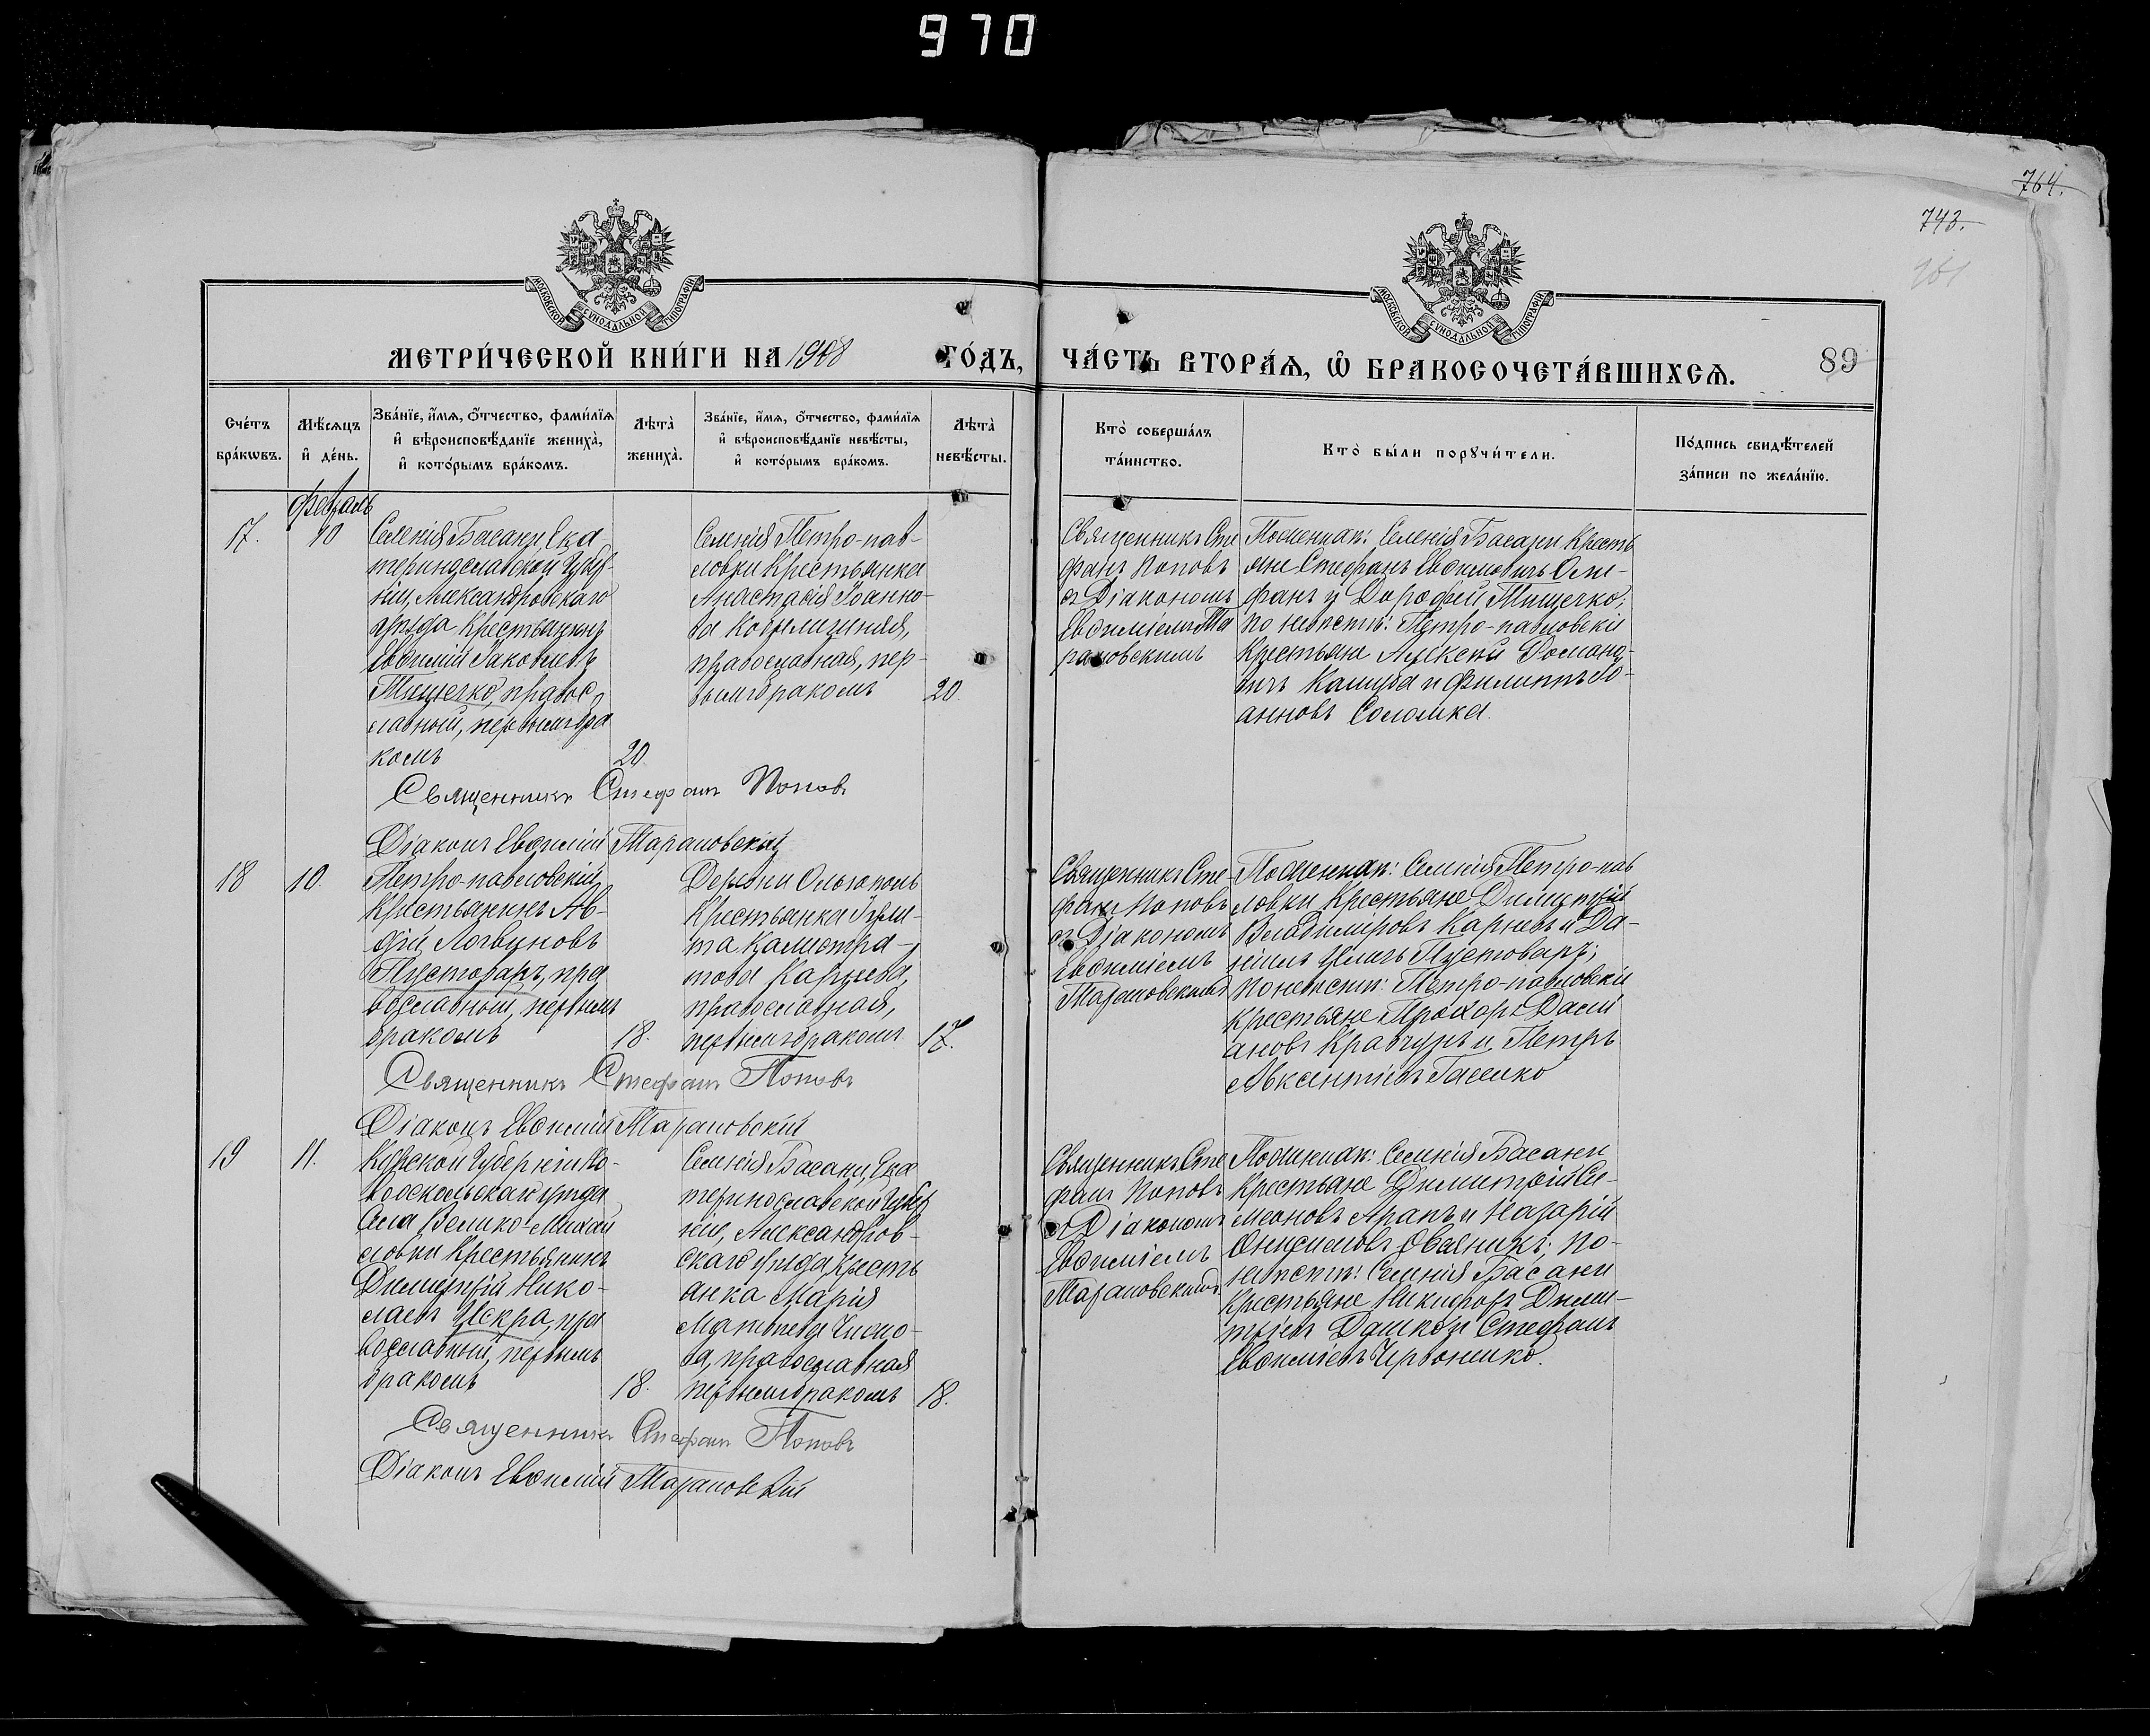 970
764.
743.
МОСКОВСКОЙ СѴНОДАЛЬНОЙ ТИПОГРАФІИ.
МОСКОВСКОЙ СѴНОДАЛЬНОЙ ТИПОГРАФІИ.
МЕТРИ́ЧЕСКОЙ КНИ́ГИ НА 1908 ГО́ДЪ,
ЧА́СТЬ ВТОРА́Ѧ, Ѽ БРАКОСОЧЕТА́ВШИХСѦ.
89
Сче́тъ бра́кѡвъ.
Мѣ́сяцъ и҆ де́нь.
Зва́нїе, и҆́мѧ, ѻ҆́тчество, фами́лїѧ
и҆ вѣроисповѣ́данїе жениха̀,
и҆ кото́рымъ бра́комъ.
Лѣта̀ жениха̀.
Зва́нїе, и҆́мѧ, ѻ҆́тчество, фами́лїѧ
и҆ вѣроисповѣ́данїе невѣ́сты,
и҆ кото́рымъ бра́комъ.
Лѣта̀ невѣ́сты.
Кто̀ соверша́лъ та́инство.
Кто̀ бы́ли порꙋчи́тели.
По́дпись свидѣ́телей
за́писи по жела́нїю.
Февраль
17.
10
Селенія Басани, Ека-
теринославской Губер-
ніи, Александровскаго
уѣзда Крестьянинъ
Евѳимій Іаковлевъ
Тищечко, правос-
лавный, первымъ бра
комъ
20
Селенія Петро-пав-
ловки Крестьянка
Анастасія Іоанно-
ва
православная, пер-
вымъ бракомъ
20
Священникъ Сте
фанъ Поповъ
съ Діакономъ
Евѳиміемъ Ма
рановскимъ
По женихѣ: Селенія Басани Кресть
яне Стефанъ Евѳимовичъ Оли-
фанъ и Дорофей Тищечко;
по невѣстѣ: Петро-павловскіе
Крестьяне Алексѣй
и Филиппъ Іо-
анновъ Соломка.
Священникъ Стефанъ Поповъ
Діаконъ Евѳимій Марановскій
18
10.
Петро-павловскій
Крестьянинъ Ав-
дій Логвиновъ
Пустоваръ, пра
вославный, первымъ
бракомъ
18.
Деревни Ольгополь
Крестьянка Іули-
та Калистра-
това Карнева,
православная,
первымъ бракомъ
17.
Священникъ Сте-
фанъ Поповъ
съ Діакономъ
Евѳиміемъ
Марановскимъ
По женихѣ: Селенія Петро-пав
ловки Крестьяне Димитрій
Владиміровъ Карневъ и Да-
ніилъ Пустоваръ;
по невѣстѣ: Петро-павловскіе
Крестьяне Прохоръ Дамі
ановъ Кравчунъ и Петръ
Авксентіевъ
Священникъ Стефанъ Поповъ
Діаконъ Евѳимій Марановскій
19
11.
Курской Губерніи Но-
вооскольскаго уѣзда
села Велико-Михай
ловки Крестьянинъ
Димитрій Нико-
лаевъ Искра, пра
вославный, первымъ
бракомъ
18.
Селенія Басани, Ека
теринославской Губер
ніи, Александров-
скаго уѣзда Кресть
янка Марія
Матвѣева Чисто-
ва, православная
первымъ бракомъ
18.
Священникъ Сте
фанъ Поповъ
съ Діакономъ
Евѳиміемъ
Марановскимъ
По женихѣ: Селенія Басани
Крестьяне Димитрій Си-
меоновъ Арапъ и Назарій
Онисимовъ Овсяникъ; по-
невѣстѣ: Селенія Басани
Крестьяне Никифоръ Дими-
тріевъ Дашко и Стефанъ
Евѳиміевъ Червоненко.
Священникъ Стефанъ Поповъ
Діаконъ Евѳимій Марановскій